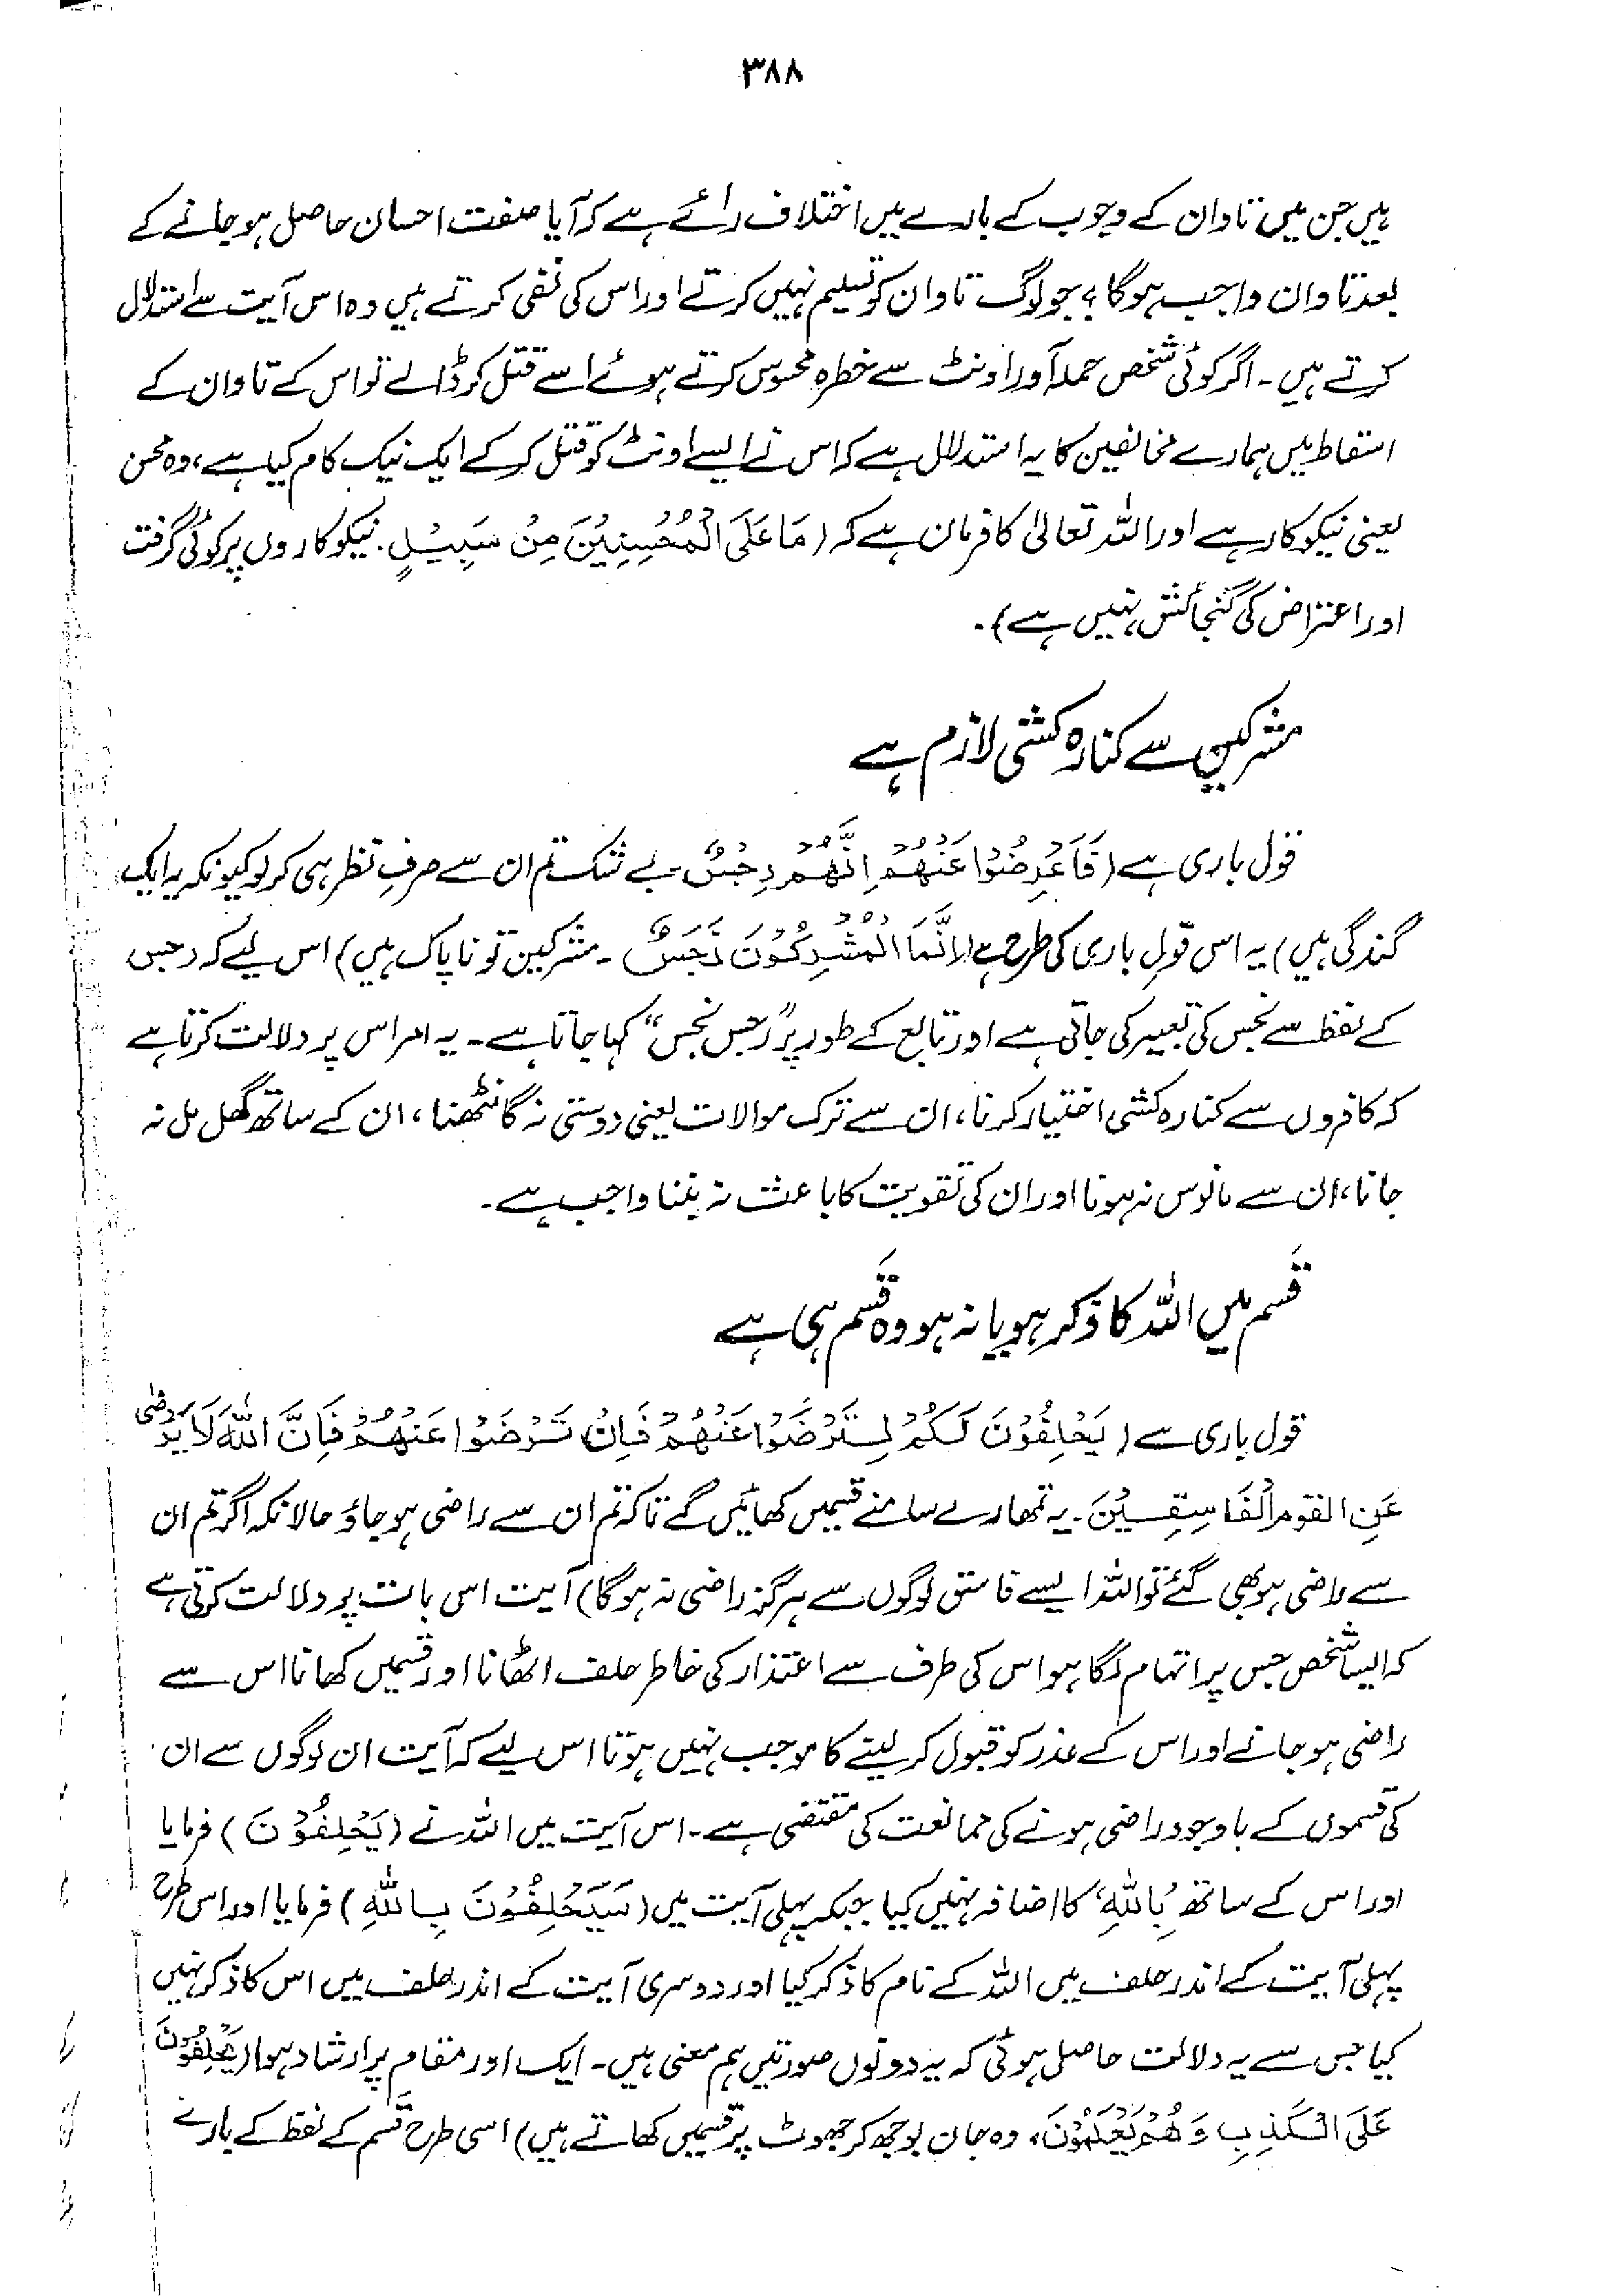 ۳۸۸
ہیں جن میں تاوان کے وجوب کے بارے میں اختلاف رائے ہے کہ آیا صفت احسان حاصل ہو جانے کے
بعد تاوان واجب ہوگا؟ جو لوگ تاوان کو تسلیم نہیں کرتے اور اس کی نفی کرتے ہیں وہ اس آیت سے استدلال
کرتے ہیں۔ اگر کوئی شخص حملہ آور اونٹ سے خطرہ محسوس کرتے ہوئے اسے قتل کر ڈالے تو اس کے تاوان کے
اسقاط میں ہمارے مخالفین کا یہ استدلال ہے کہ اس نے ایسے اونٹ کو قتل کر کے ایک نیک کام کیا ہے، وہ محسن
یعنی نیکوکار ہے اور اللہ تعالیٰ کا فرمان ہے کہ (مَا عَلَى الْمُحْسِنِيْنَ مِنْ سَبِيْلٍ. نیکوکاروں پر کوئی گرفت
اور اعتراض کی گنجائش نہیں ہے)۔
مشرکین سے کنارہ کشی لازم ہے
قول باری ہے (فَاَعْرِضُوْا عَنْهُمْ اِنَّهُمْ رِجْسٌ۔ بے شک تم ان سے صرفِ نظر ہی کر لو کیونکہ یہ ایک
گندگی ہیں) یہ اس قولِ باری کی طرح ہے (اِنَّمَا الْمُشْرِكُوْنَ نَجَسٌ۔ مشرکین تو ناپاک ہیں) اس لیے کہ رجس
کے لفظ سے نجس کی تعبیر کی جاتی ہے اور تابع کے طور پر "رجس نجس" کہا جاتا ہے۔ یہ امر اس پر دلالت کرتا ہے
کہ کافروں سے کنارہ کشی اختیار کرنا، ان سے ترک موالات یعنی دوستی نہ گانٹھنا، ان کے ساتھ گھل مل نہ
جانا، ان سے مانوس نہ ہونا اور ان کی تقویت کا باعث نہ بننا واجب ہے۔
قَسم میں اللہ کا ذکر ہو یا نہ ہو وہ قَسم ہی ہے
قول باری ہے (يَحْلِفُوْنَ لَكُمْ لِتَرْضَوْا عَنْهُمْ فَاِنْ تَرْضَوْا عَنْهُمْ فَاِنَّ اللّٰهَ لَا يَرْضٰى
عَنِ الْقَوْمِ الْفَاسِقِيْنَ۔ یہ تمھارے سامنے قسمیں کھائیں گے تاکہ تم ان سے راضی ہو جاؤ حالانکہ اگر تم ان
سے راضی ہو بھی گئے تو اللہ ایسے فاسق لوگوں سے ہرگز راضی نہ ہوگا) آیت اس بات پر دلالت کرتی ہے
کہ ایسا شخص جس پر اتہام لگا ہو اس کی طرف سے اعتذار کی خاطر حلف اٹھانا اور قسمیں کھانا اس سے
راضی ہو جانے اور اس کے عذر کو قبول کر لینے کا موجب نہیں ہوتا اس لیے کہ آیت ان لوگوں سے ان
کی قسموں کے باوجود راضی ہونے کی ممانعت کی مقتضی ہے۔ اس آیت میں اللہ نے (يَحْلِفُوْنَ) فرمایا
اور اس کے ساتھ 'بِاللّٰهِ' کا اضافہ نہیں کیا جبکہ پہلی آیت میں (سَيَحْلِفُوْنَ بِاللّٰهِ) فرمایا اور اس طرح
پہلی آیت کے اندر حلف میں اللہ کے نام کا ذکر کیا اور دوسری آیت کے اندر حلف میں اس کا ذکر نہیں
کیا جس سے یہ دلالت حاصل ہوئی کہ یہ دونوں صورتیں ہم معنی ہیں۔ ایک اور مقام پر ارشاد ہوا (يَحْلِفُوْنَ
عَلَى الْكَذِبِ وَهُمْ يَعْلَمُوْنَ، وہ جان بوجھ کر جھوٹ پر قسمیں کھاتے ہیں) اسی طرح قَسم کے لفظ کے بارے